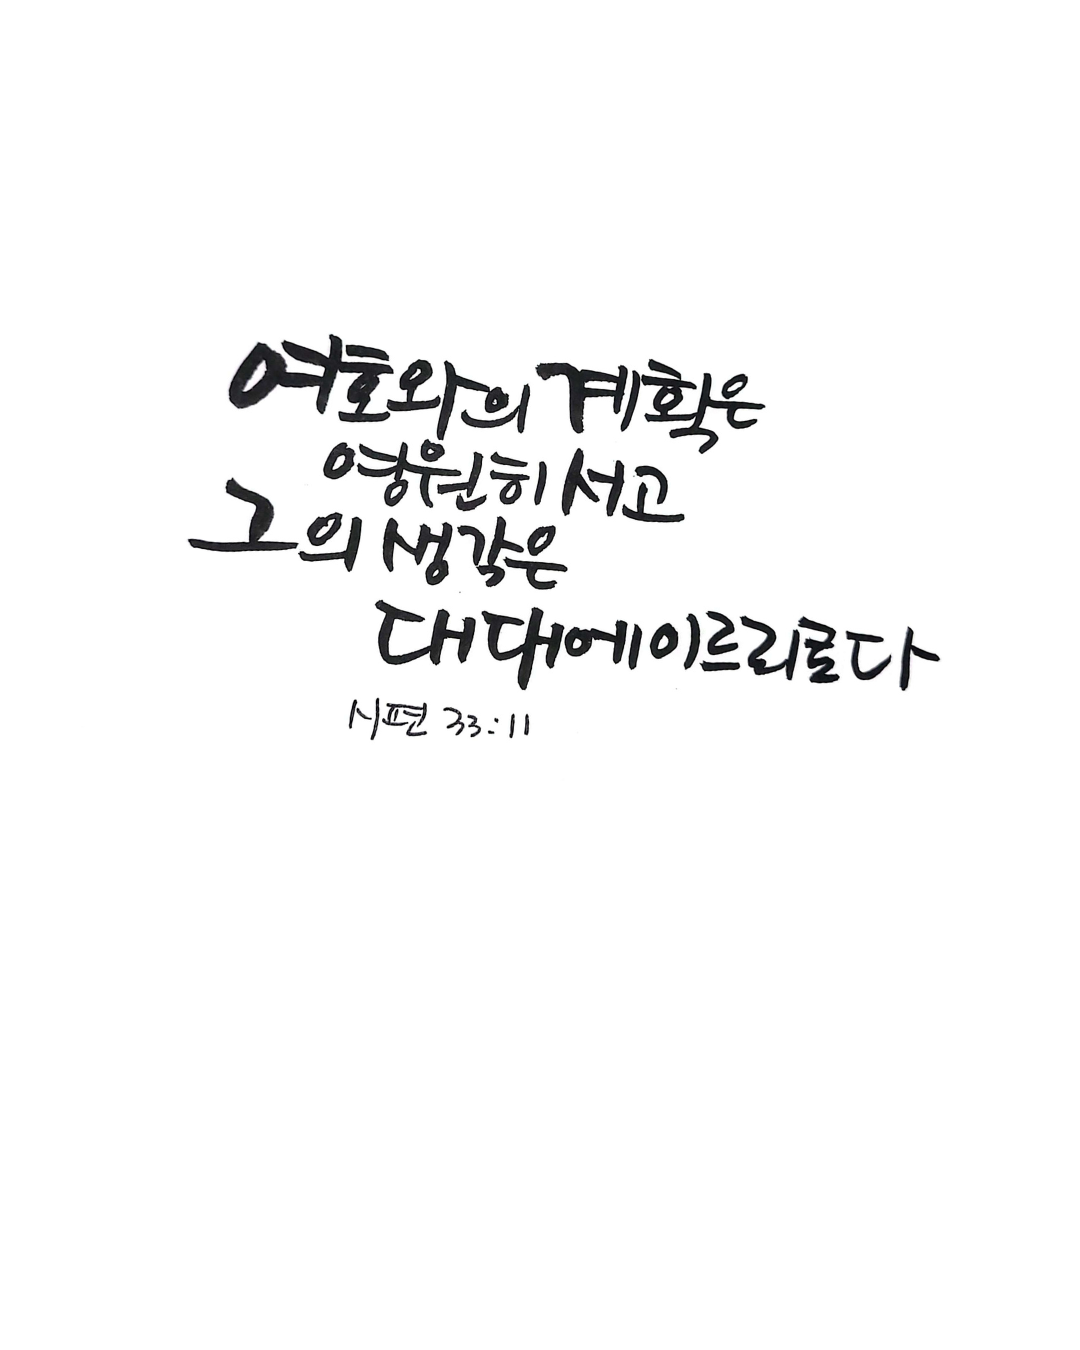 여호와의 계획은
영원히 서고
그의 생각은
대대에 이르리로다
시편 33:11